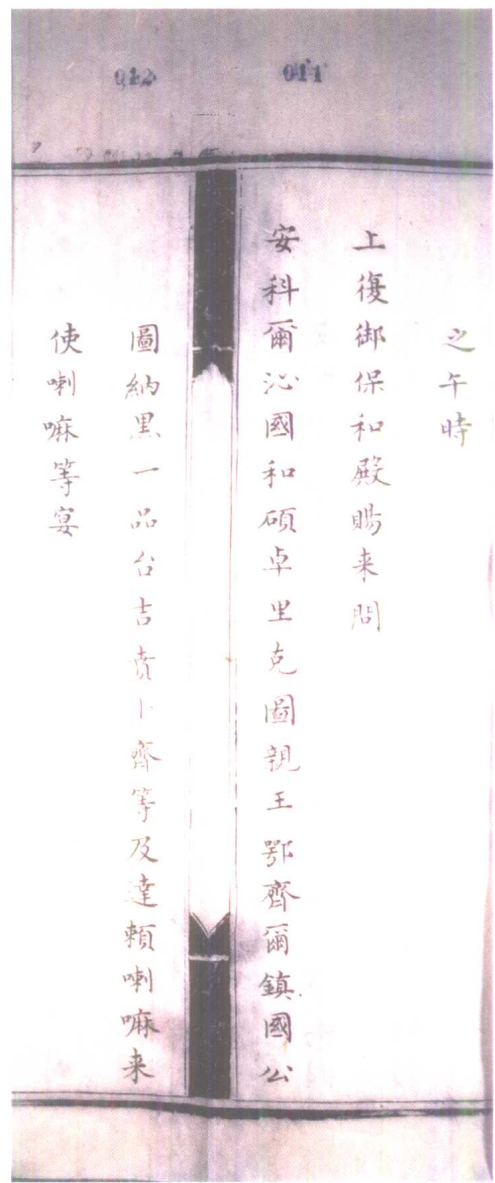 012 011
之午時
上復御保和殿賜来問
安科爾沁國和碩卓里克圖親王鄂齊爾鎮國公
圖納黑一品台吉賁卜齊等及達賴喇嘛来
使喇嘛等宴